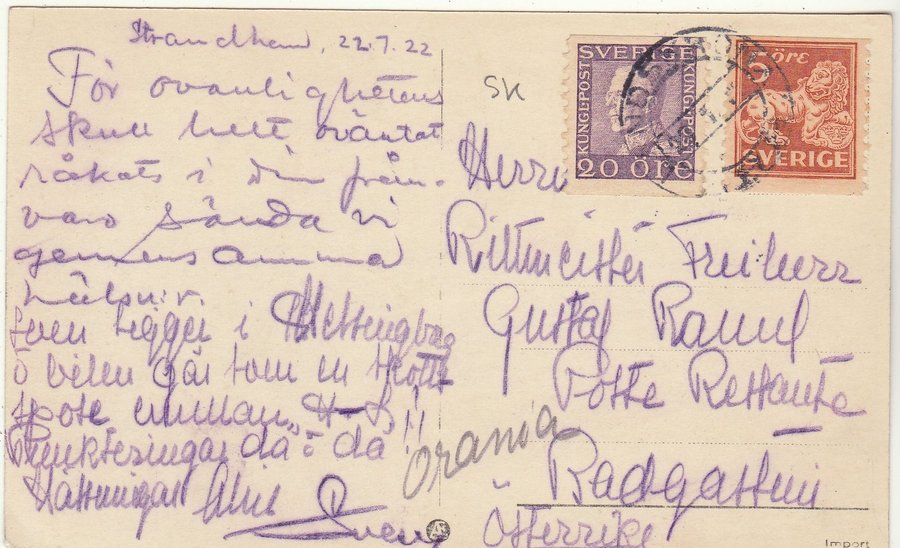 Strandhem, 22.7.22
För ovanlighetens
skull helt oväntat
råkats i din från-
varo sända vi
gemensamma
hälsn.
ligger i Helsingborg
o bilen går som en
H-B !!
Punkteringar då o då
Hälsningar
Sven
SK
SVERIGE
KUNGL·POST
KUNGL·POST
20 ÖRE
5 ÖRE
SVERIGE
Herrn
Rittmeister Freiherr
Gustaf Ramel
Poste Restante
Badgastein
Österrike
Orania
Import